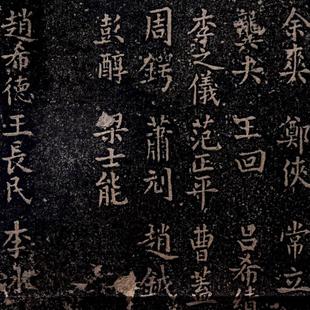 余爽 鄭俠 常立
龔夬 王回 呂希績
李之儀 范正平 曹蓋
周鍔 蕭刓 趙鉞
彭醇 梁士能
趙希德 王長民 李永